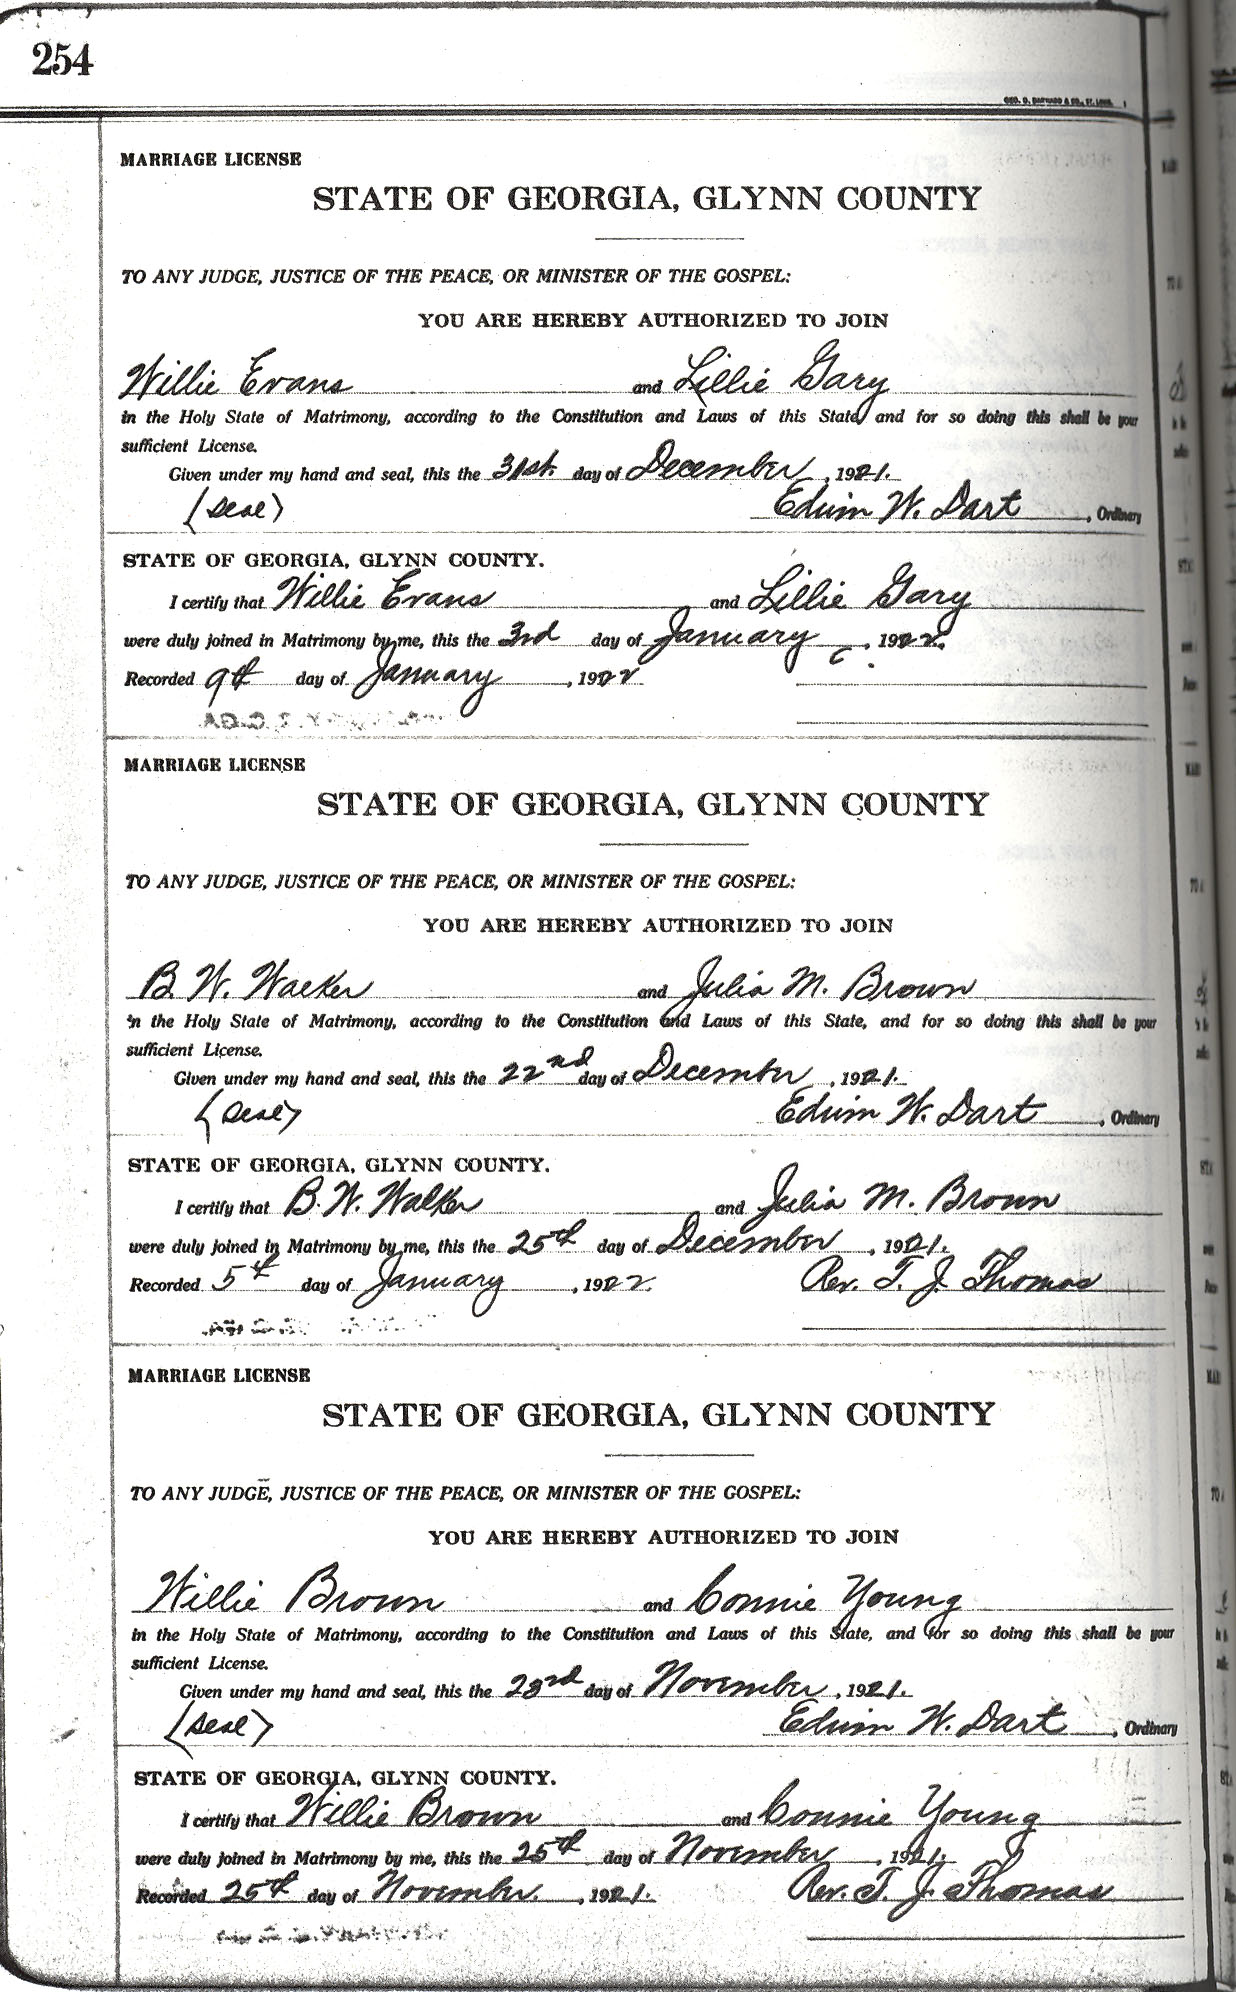 254
GEO. D. BARNARD & CO., ST. LOUIS.
MARRIAGE LICENSE
STATE OF GEORGIA, GLYNN COUNTY
TO ANY JUDGE, JUSTICE OF THE PEACE, OR MINISTER OF THE GOSPEL:
YOU ARE HEREBY AUTHORIZED TO JOIN
Willie Evans and Lillie Gary
in the Holy State of Matrimony, according to the Constitution and Laws of this State, and for so doing this shall be your
sufficient License.
Given under my hand and seal, this the 31st. day of December, 1921.
(Seal) Edwin W. Dart, Ordinary
STATE OF GEORGIA, GLYNN COUNTY.
I certify that Willie Evans and Lillie Gary
were duly joined in Matrimony by me, this the 3rd day of January, 1922.
Recorded 9th day of January, 1922
MARRIAGE LICENSE
STATE OF GEORGIA, GLYNN COUNTY
TO ANY JUDGE, JUSTICE OF THE PEACE, OR MINISTER OF THE GOSPEL:
YOU ARE HEREBY AUTHORIZED TO JOIN
B. W. Walker and Julia M. Brown
in the Holy State of Matrimony, according to the Constitution and Laws of this State, and for so doing this shall be your
sufficient License.
Given under my hand and seal, this the 22nd day of December, 1921.
(Seal) Edwin W. Dart, Ordinary
STATE OF GEORGIA, GLYNN COUNTY.
I certify that B. W. Walker and Julia M. Brown
were duly joined in Matrimony by me, this the 25th day of December, 1921.
Recorded 5th day of January, 1922. Rev. T. J. Thomas
MARRIAGE LICENSE
STATE OF GEORGIA, GLYNN COUNTY
TO ANY JUDGE, JUSTICE OF THE PEACE, OR MINISTER OF THE GOSPEL:
YOU ARE HEREBY AUTHORIZED TO JOIN
Willie Brown and Connie Young
in the Holy State of Matrimony, according to the Constitution and Laws of this State, and for so doing this shall be your
sufficient License.
Given under my hand and seal, this the 23rd day of November, 1921.
(Seal) Edwin W. Dart, Ordinary
STATE OF GEORGIA, GLYNN COUNTY.
I certify that Willie Brown and Connie Young
were duly joined in Matrimony by me, this the 25th day of November, 1921.
Recorded 25th day of November, 1921. Rev. T. J. Thomas